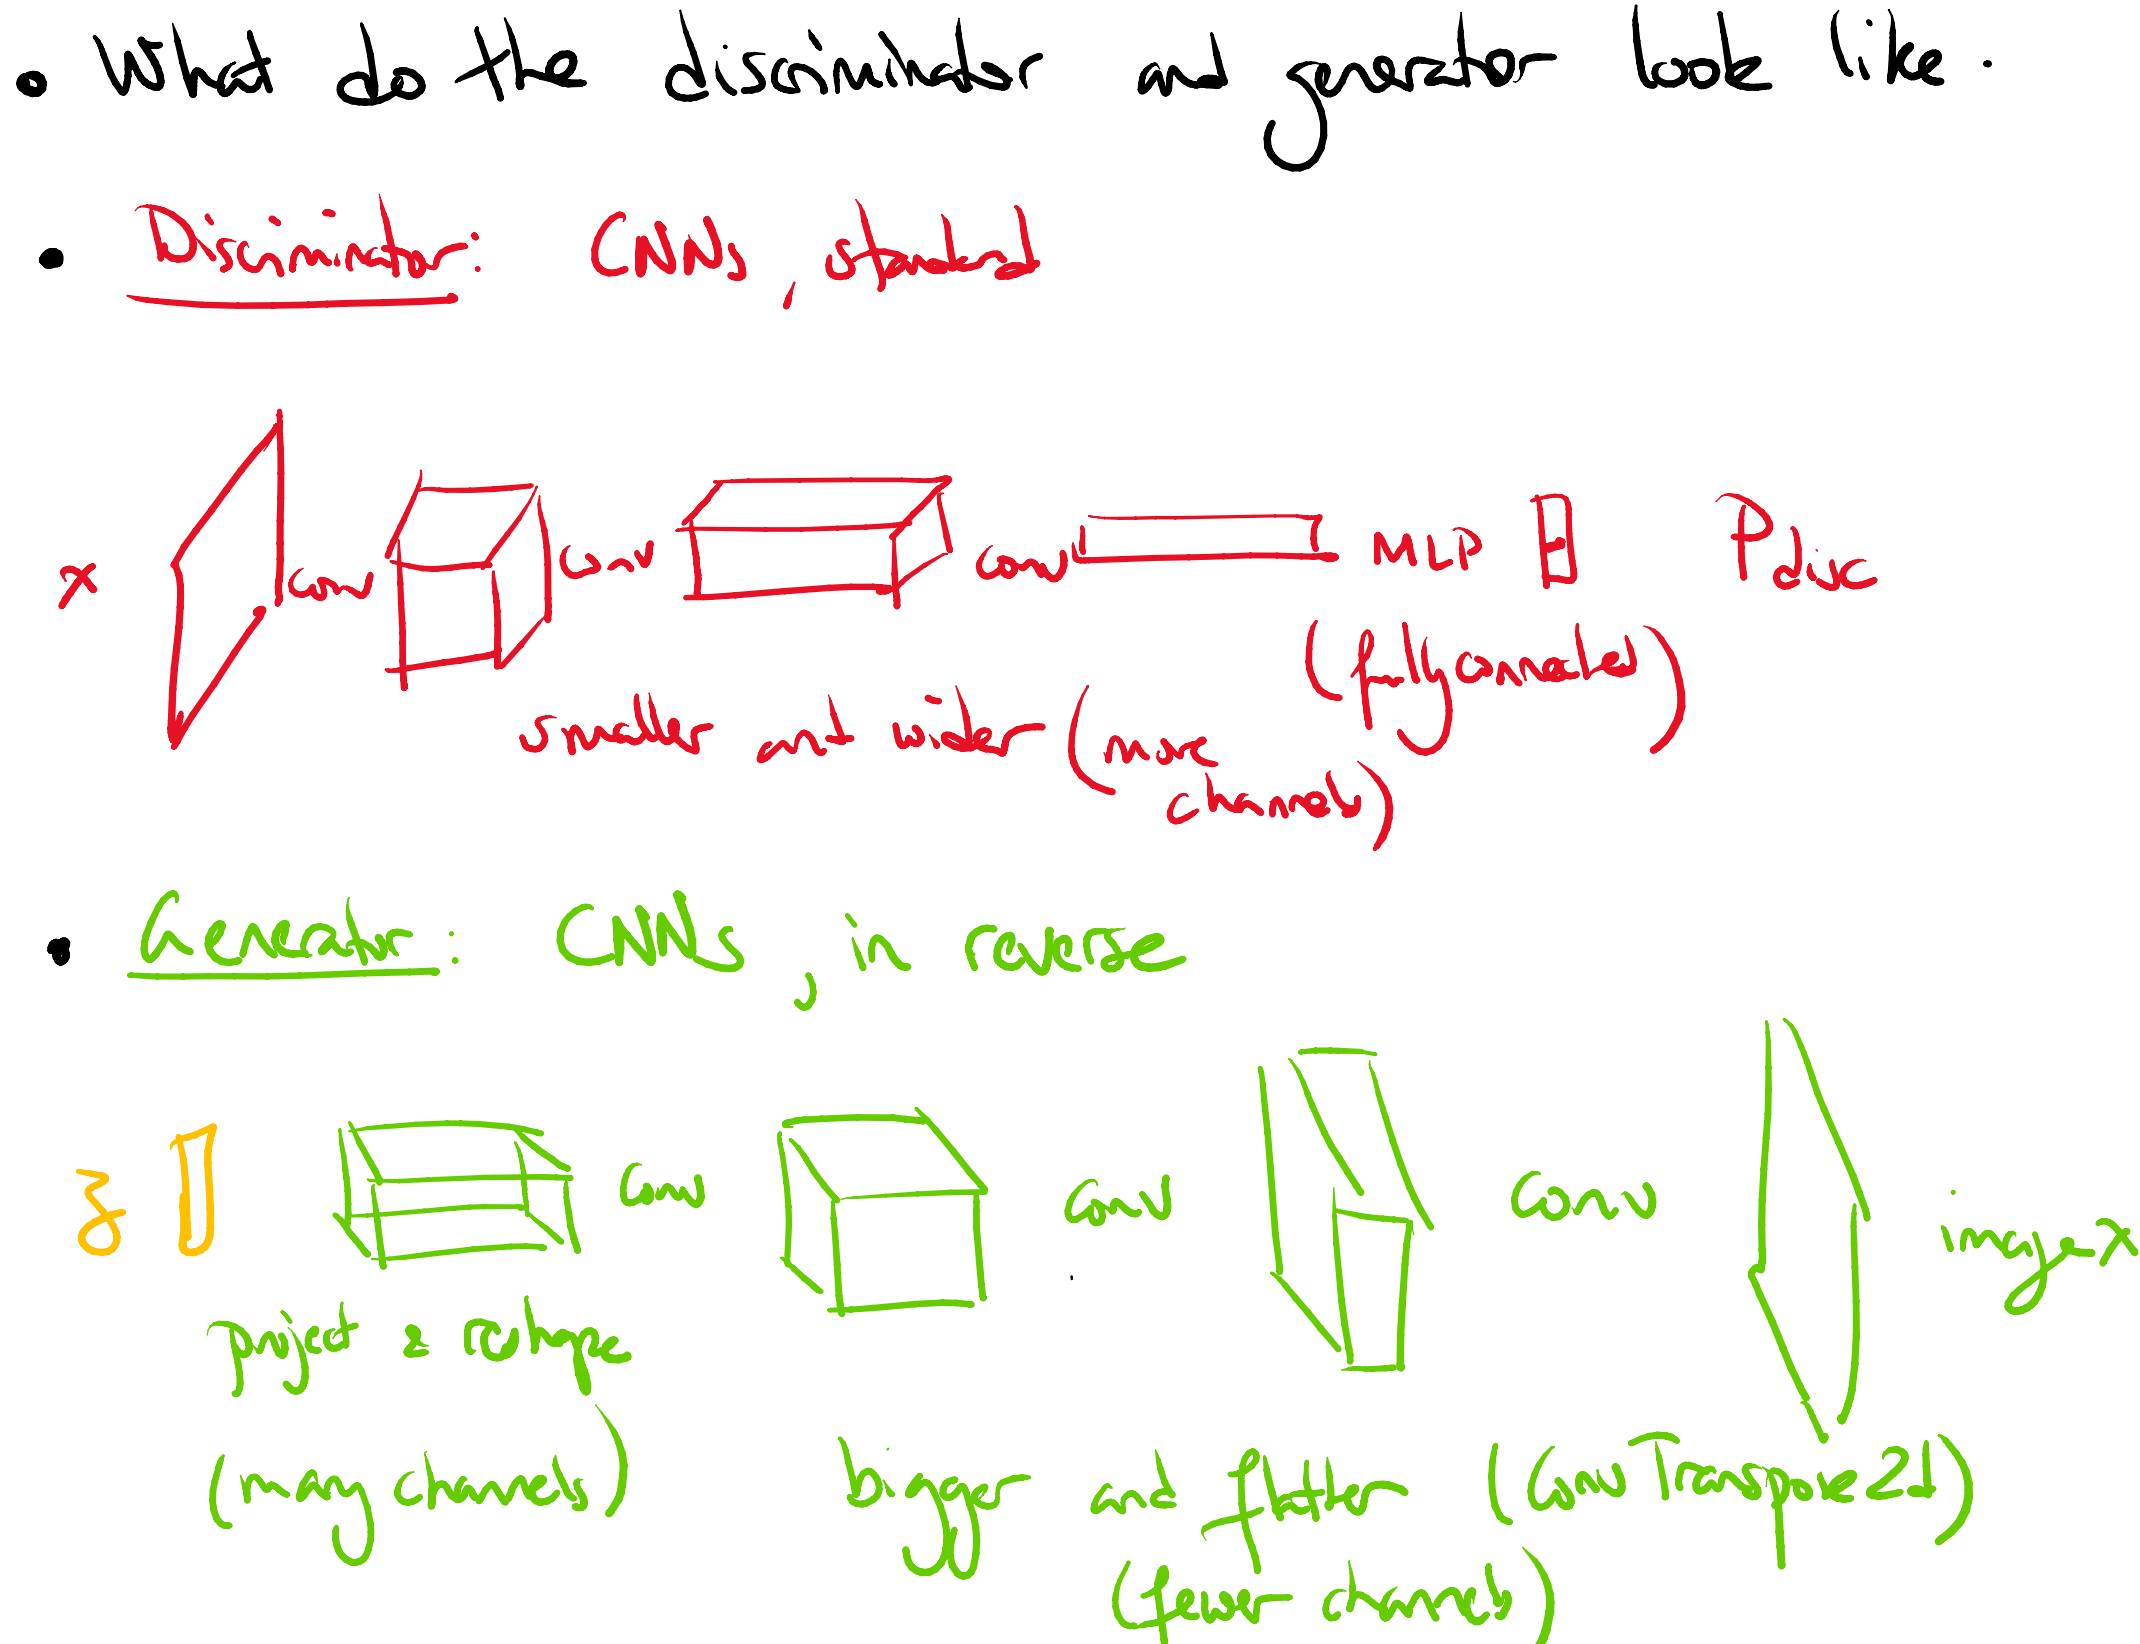 • What do the discriminator and generator look like.
• Discriminator: CNNs, standard
x conv conv conv MLP Pdisc
(fully connected)
smaller and wider (more
channels)
• Generator: CNNs, in reverse
z conv conv conv image x
project & reshape
(many channels) bigger and flatter (ConvTranspose2d)
(fewer channels)